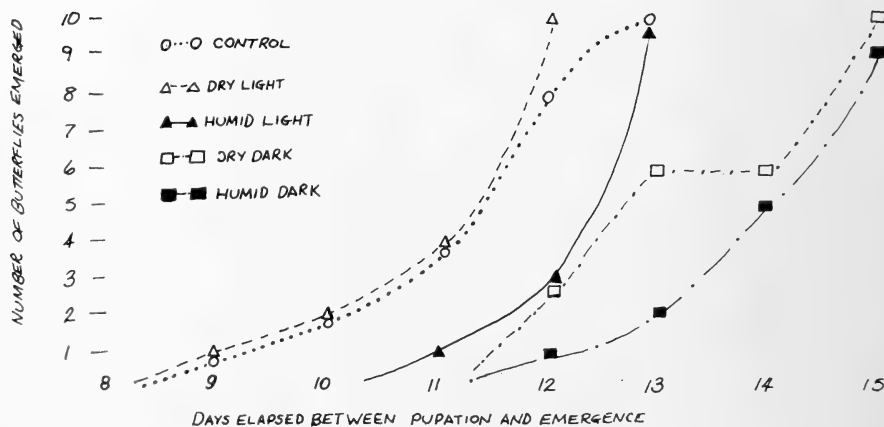 NUMBER OF BUTTERFLIES EMERGED
10
9
8
6
5
4
3
2
1
O···O CONTROL
△--△ DRY LIGHT
▲—▲ HUMID LIGHT
□-··-□ DRY DARK
■—-■ HUMID DARK
8 9 10 11 12 13 14 15
DAYS ELAPSED BETWEEN PUPATION AND EMERGENCE